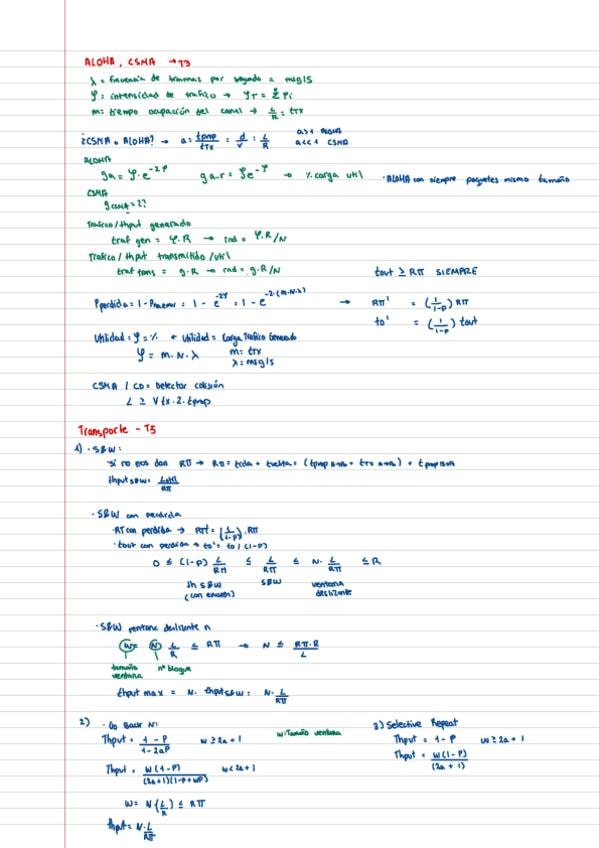 ALOHA, CSMA → T3
λ = frecuencia de tramas por segundo = msg/s
φ = intensidad de trafico → φT = Σ φi
m = tiempo ocupación del canal → L/R = tTX
¿CSMA o ALOHA? → a = tprop/tTx = d/v : L/R a>1 ALOHA
a<<1 CSMA
ALOHA
ga = φ·e^-2φ ga.r = φe^-φ → % carga util · ALOHA con siempre paquetes mismo tamaño
CSMA
gCSMA = ??
Trafico/thput generado
traf gen = φ·R → ind = φ·R/N
Trafico/thput transmitido/util
traf trans = g·R → ind = g·R/N
tout ≥ RTT SIEMPRE
Pperdida = 1 - = 1 - e^-2φ = 1 - e^-2·(m·N·λ) → RTT' = (1/1-p) RTT
to' = (1/1-p) tout
Utilidad = φ = % ← Utilidad = Carga Trafico Generado
φ = m·N·λ m = tTX
λ = msg/s
CSMA / CD = Detector colisión
L ≥ Vtx·2·tprop
Transporte - T5
1) · S&W:
Si no nos dan RTT → RTT = tida + tvuelta = (tprop A→B + tTX A→B) + tprop B→A
thput S&W = Lutil/RTT
· S&W con perdida
· RT con perdida → RTT' = (1/1-p)·RTT
· tout con perdida → to' = to/(1-p)
0 ≤ (1-p) L/RTT ≤ L/RTT ≤ N·L/RTT ≤ R
th S&W (con errores) S&W ventana deslizante
· S&W ventana deslizante n
W = N L/R ≤ RTT → N ≤ RTT·R/L
tamaño ventana nº bloque
thput max = N· thput S&W = N·L/RTT
2) · Go Back N: 3) Selective Repeat
Thput = 1-P/1-2aP w ≥ 2a+1 w: Tamaño ventana Thput = 1-P w ≥ 2a+1
Thput = w(1-P)/(2a+1)(1-P+wP) w < 2a+1 Thput = w(1-P)/(2a+1)
w = N(L/R) ≤ RTT
thput = N·L/RTT